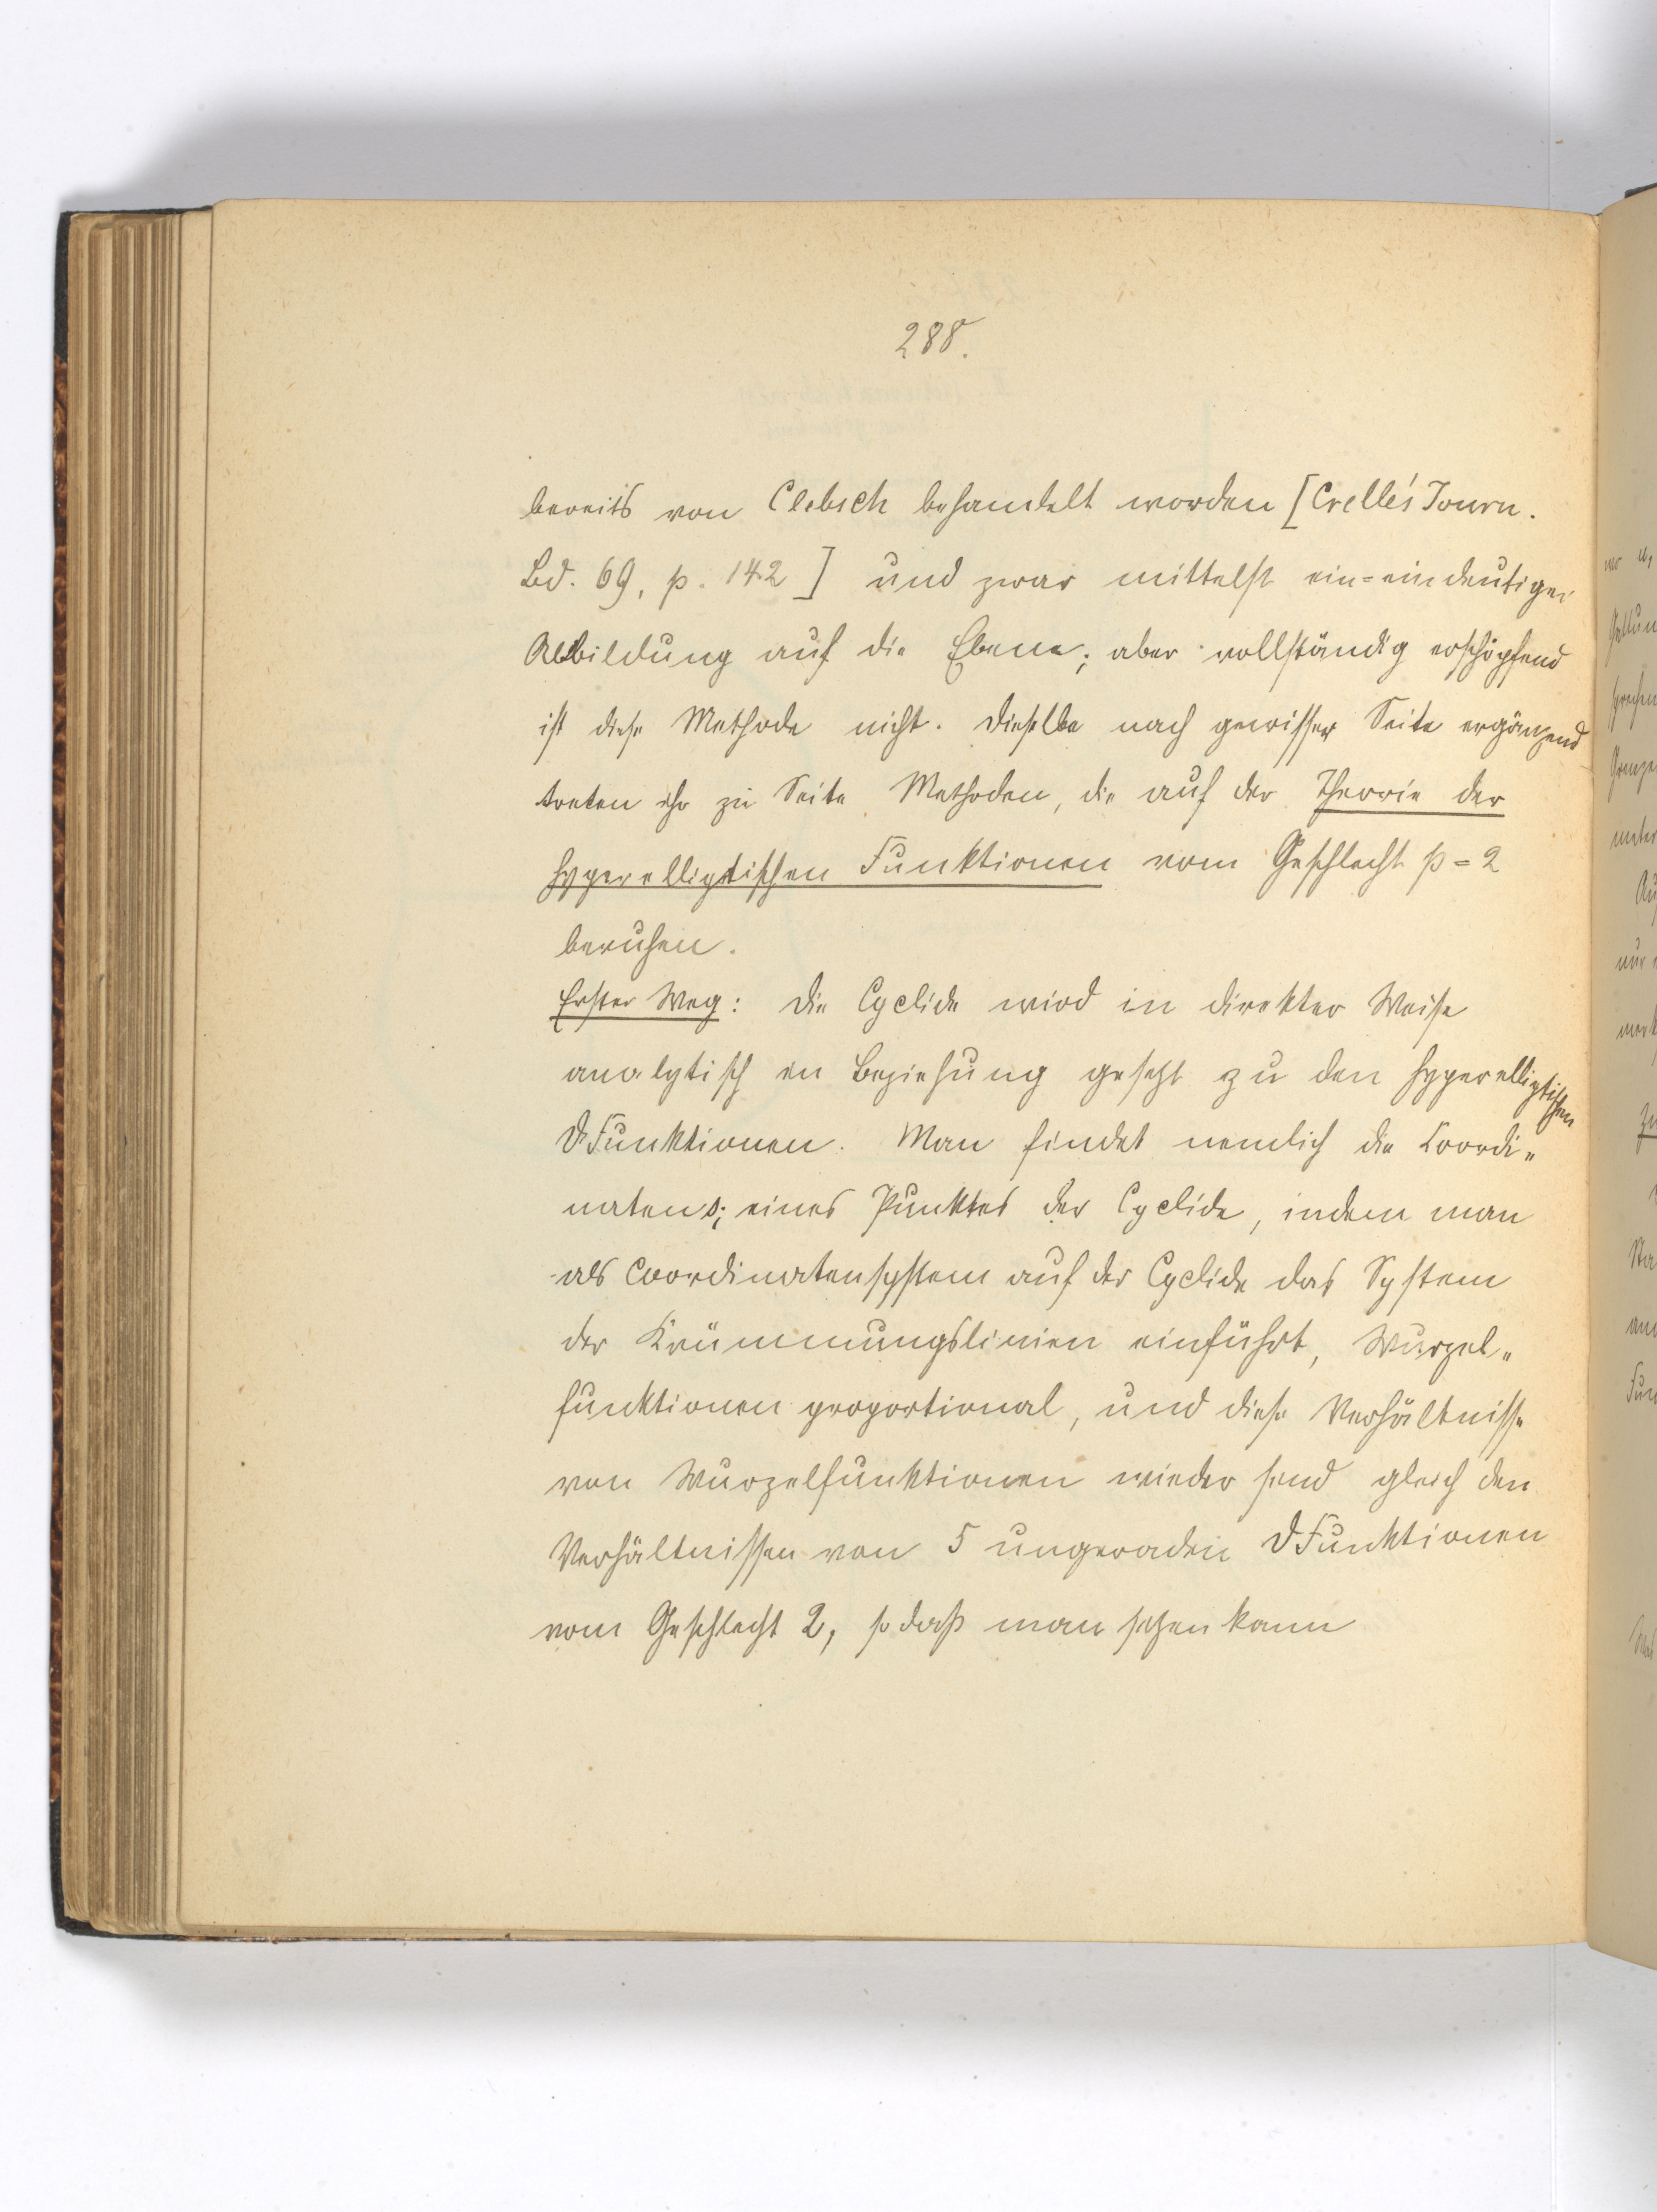 288.
bereits von Clebsch behandelt worden [Crelle's Journ.
Bd. 69, p. 142] und zwar mittelst ein=eindeutiger
Abbildung auf die Ebene; aber vollständig erschöpfend
ist diese Methode nicht. Dieselbe nach gewisser Seite ergänzend
treten ihr zu Seite Methoden, die auf der Theorie der
hyperelliptischen Funktionen vom Geschlecht p = 2
beruhen.
Erster Weg: Die Cyclide wird in direkter Weise
analytisch in Beziehung gesetzt zu den hyperelliptischen
ϑFunktionen. Man findet nemlich die Coordi„
naten sᵢ eines Punktes der Cyclide, indem man
als Coordinatensystem auf der Cyclide das System
der Krümmungslinien einführt, Wurzel„
funktionen proportional, und diese Verhältnisse
von Wurzelfunktionen wieder sind gleich den
Verhältnissen von 5 ungeraden ϑFunktionen
vom Geschlecht 2, so daß man setzen kann